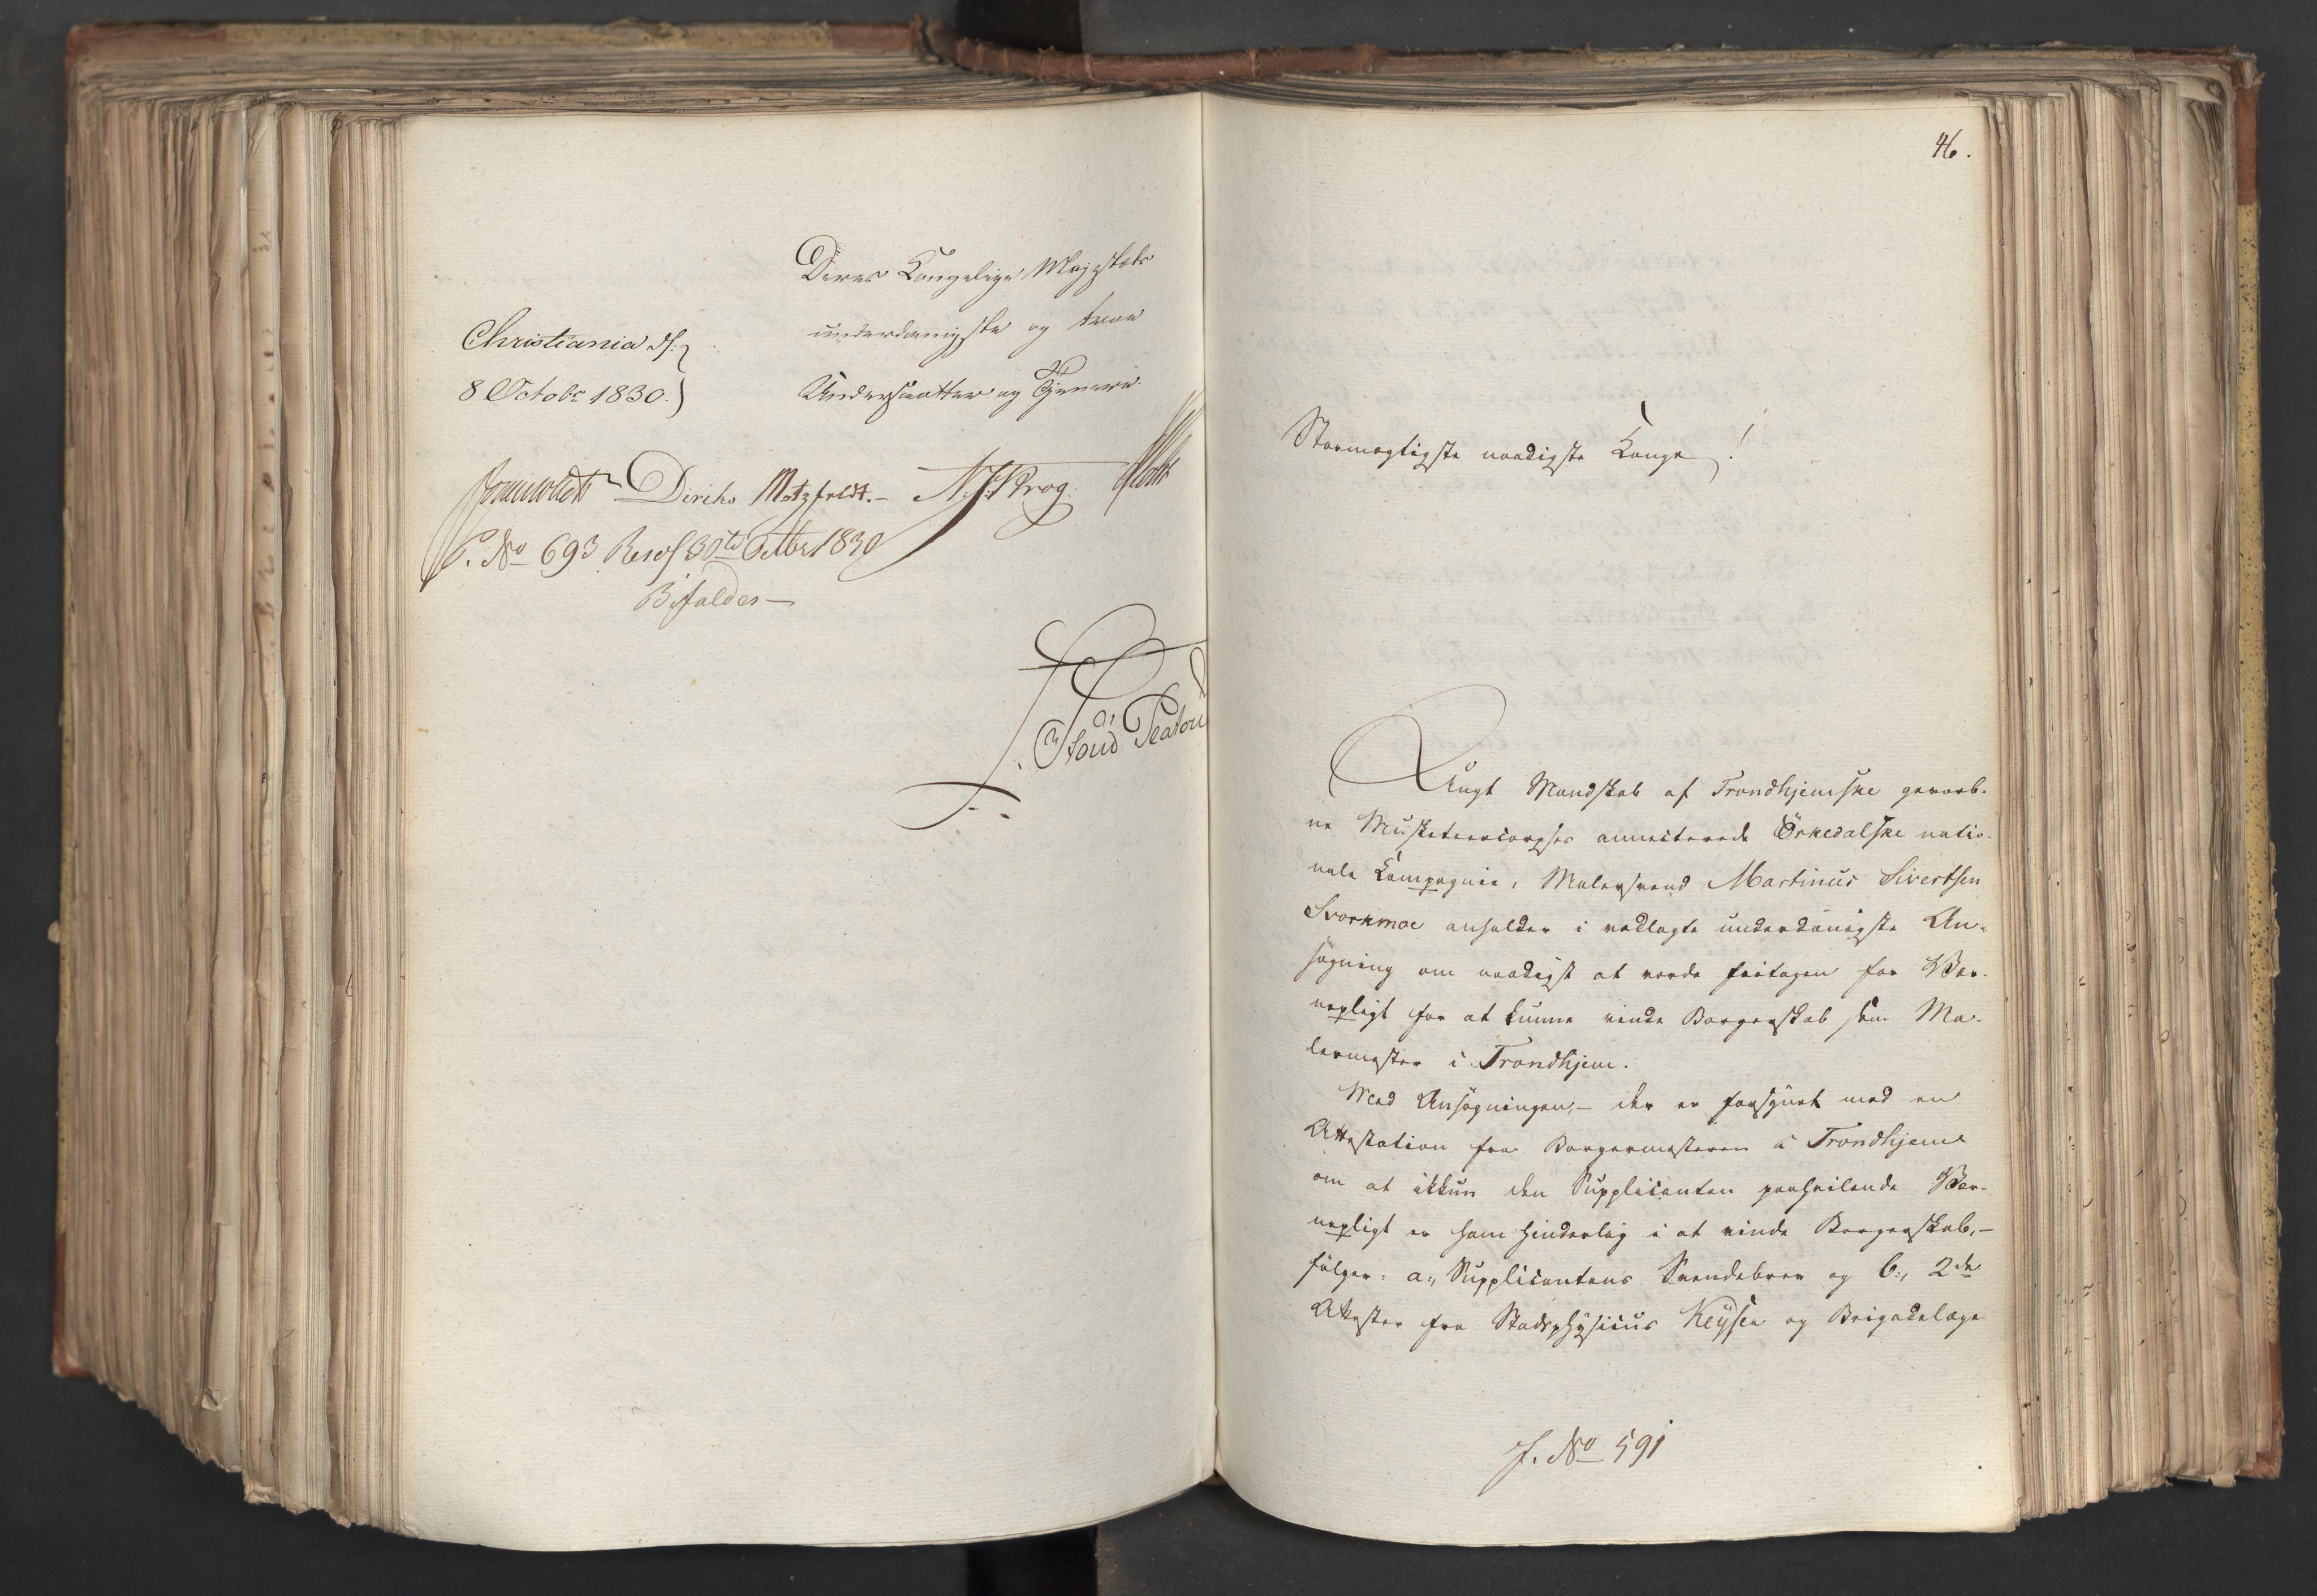 Deres Kongelige Majestæts
underdanigste og troe
Undersaatter og Tjenere.
Christiania d:
8 Octobr 1830.
Diriks Motzfeldt. N. J. Krog.
P. No 693 Resol 30te Octbr 1830
Bifaldes
46.
Stormægtigste naadigste Konge!
Ungt Mandskab af Trondhjemske gevorb-
ne Musketeercorpses annecterede Örkedalske natio-
nale Kompagnie, Malersvend Martinus Sivertsen
Svorkmoe anholder i vedlagte underdanigste An-
søgning om naadigst at vorde fritagen for Vær-
nepligt for at kunne vinde Borgerskab som Ma-
lermester i Trondhjem.
Med Ansøgningen, – der er forsynet med en
Attestation fra Borgermesteren i Trondhjem
om at ikkun den Supplicanten paahvilende Vær-
nepligt er ham hinderlig i at vinde Borgerskab, –
følger: a., Supplicantens Svendebrev og b:, 2de
Attester fra Stadsphysicus Keyser og Brigadelæge
J. No 591